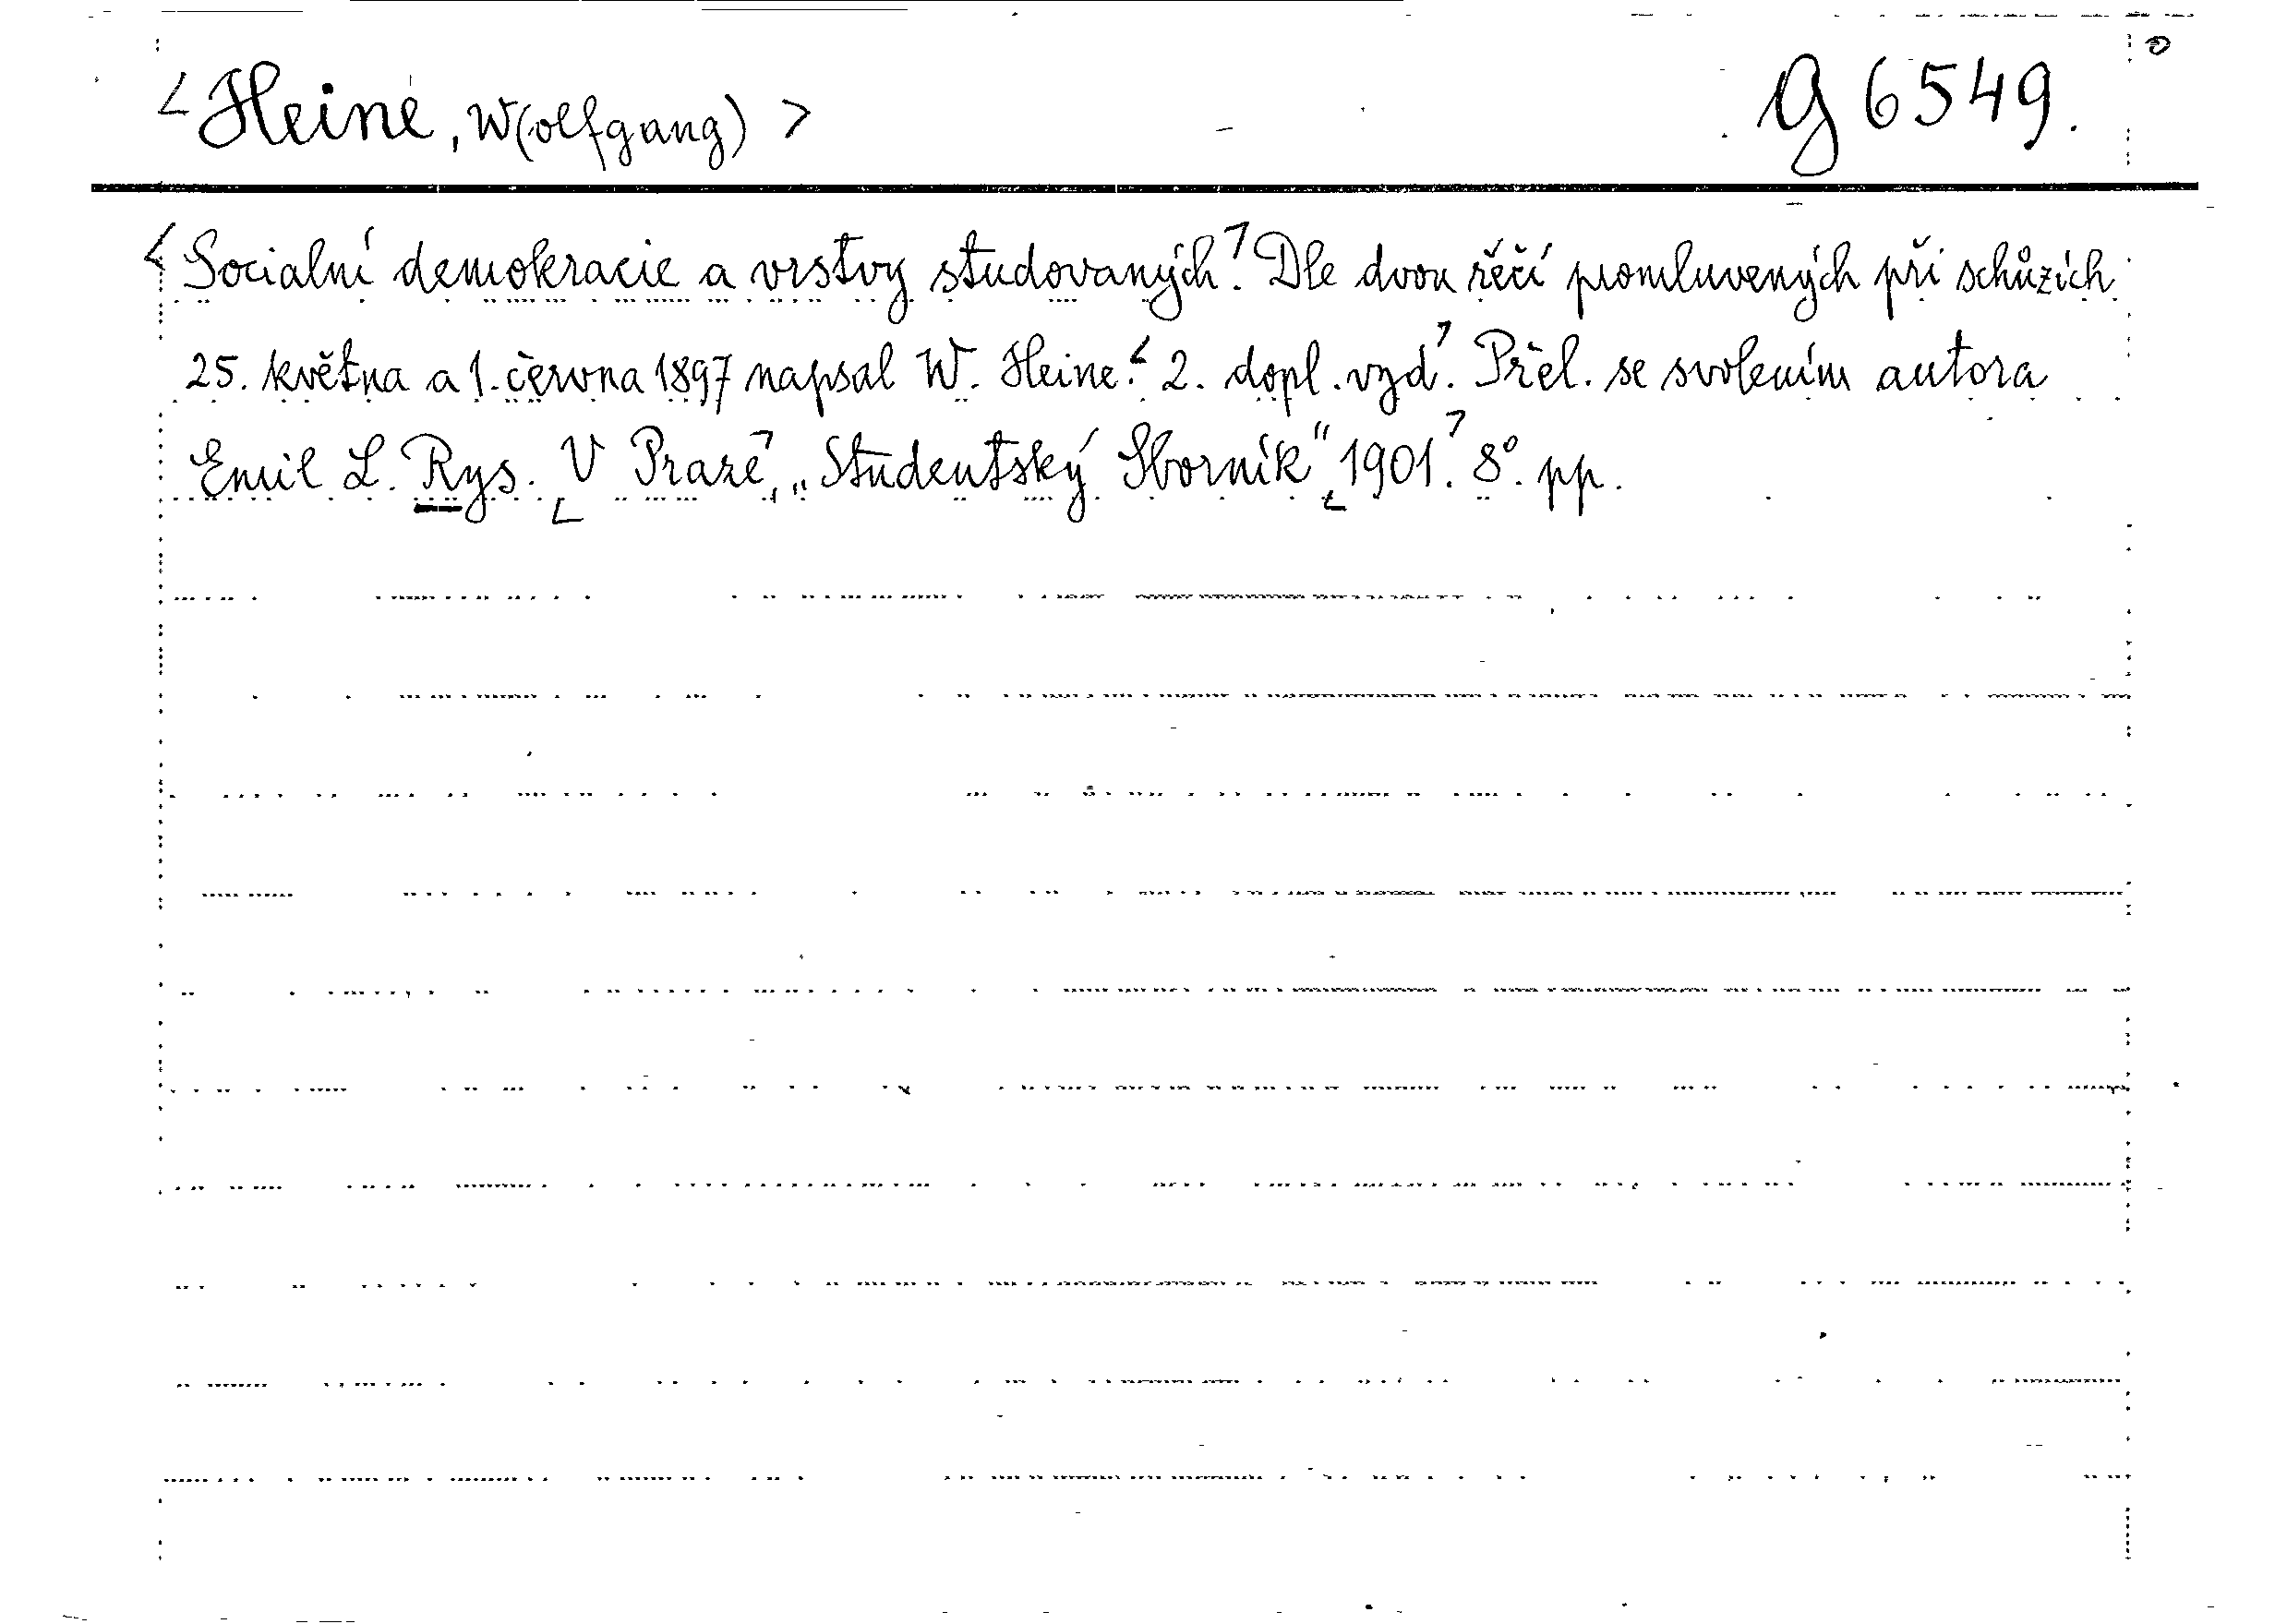 <Heine, W(olfgang)> G 6549.
<Socialní demokracie a vrstvy studovaných.> Dle dvou řečí promluvených při schůzích
25. května a 1. června 1897 napsal W. Heine. <2. dopl. vyd.> Přel. se svolením autora
Emil L. Rys. <V Praze>, „Studentský Sborník" <1901.> 8°. pp.